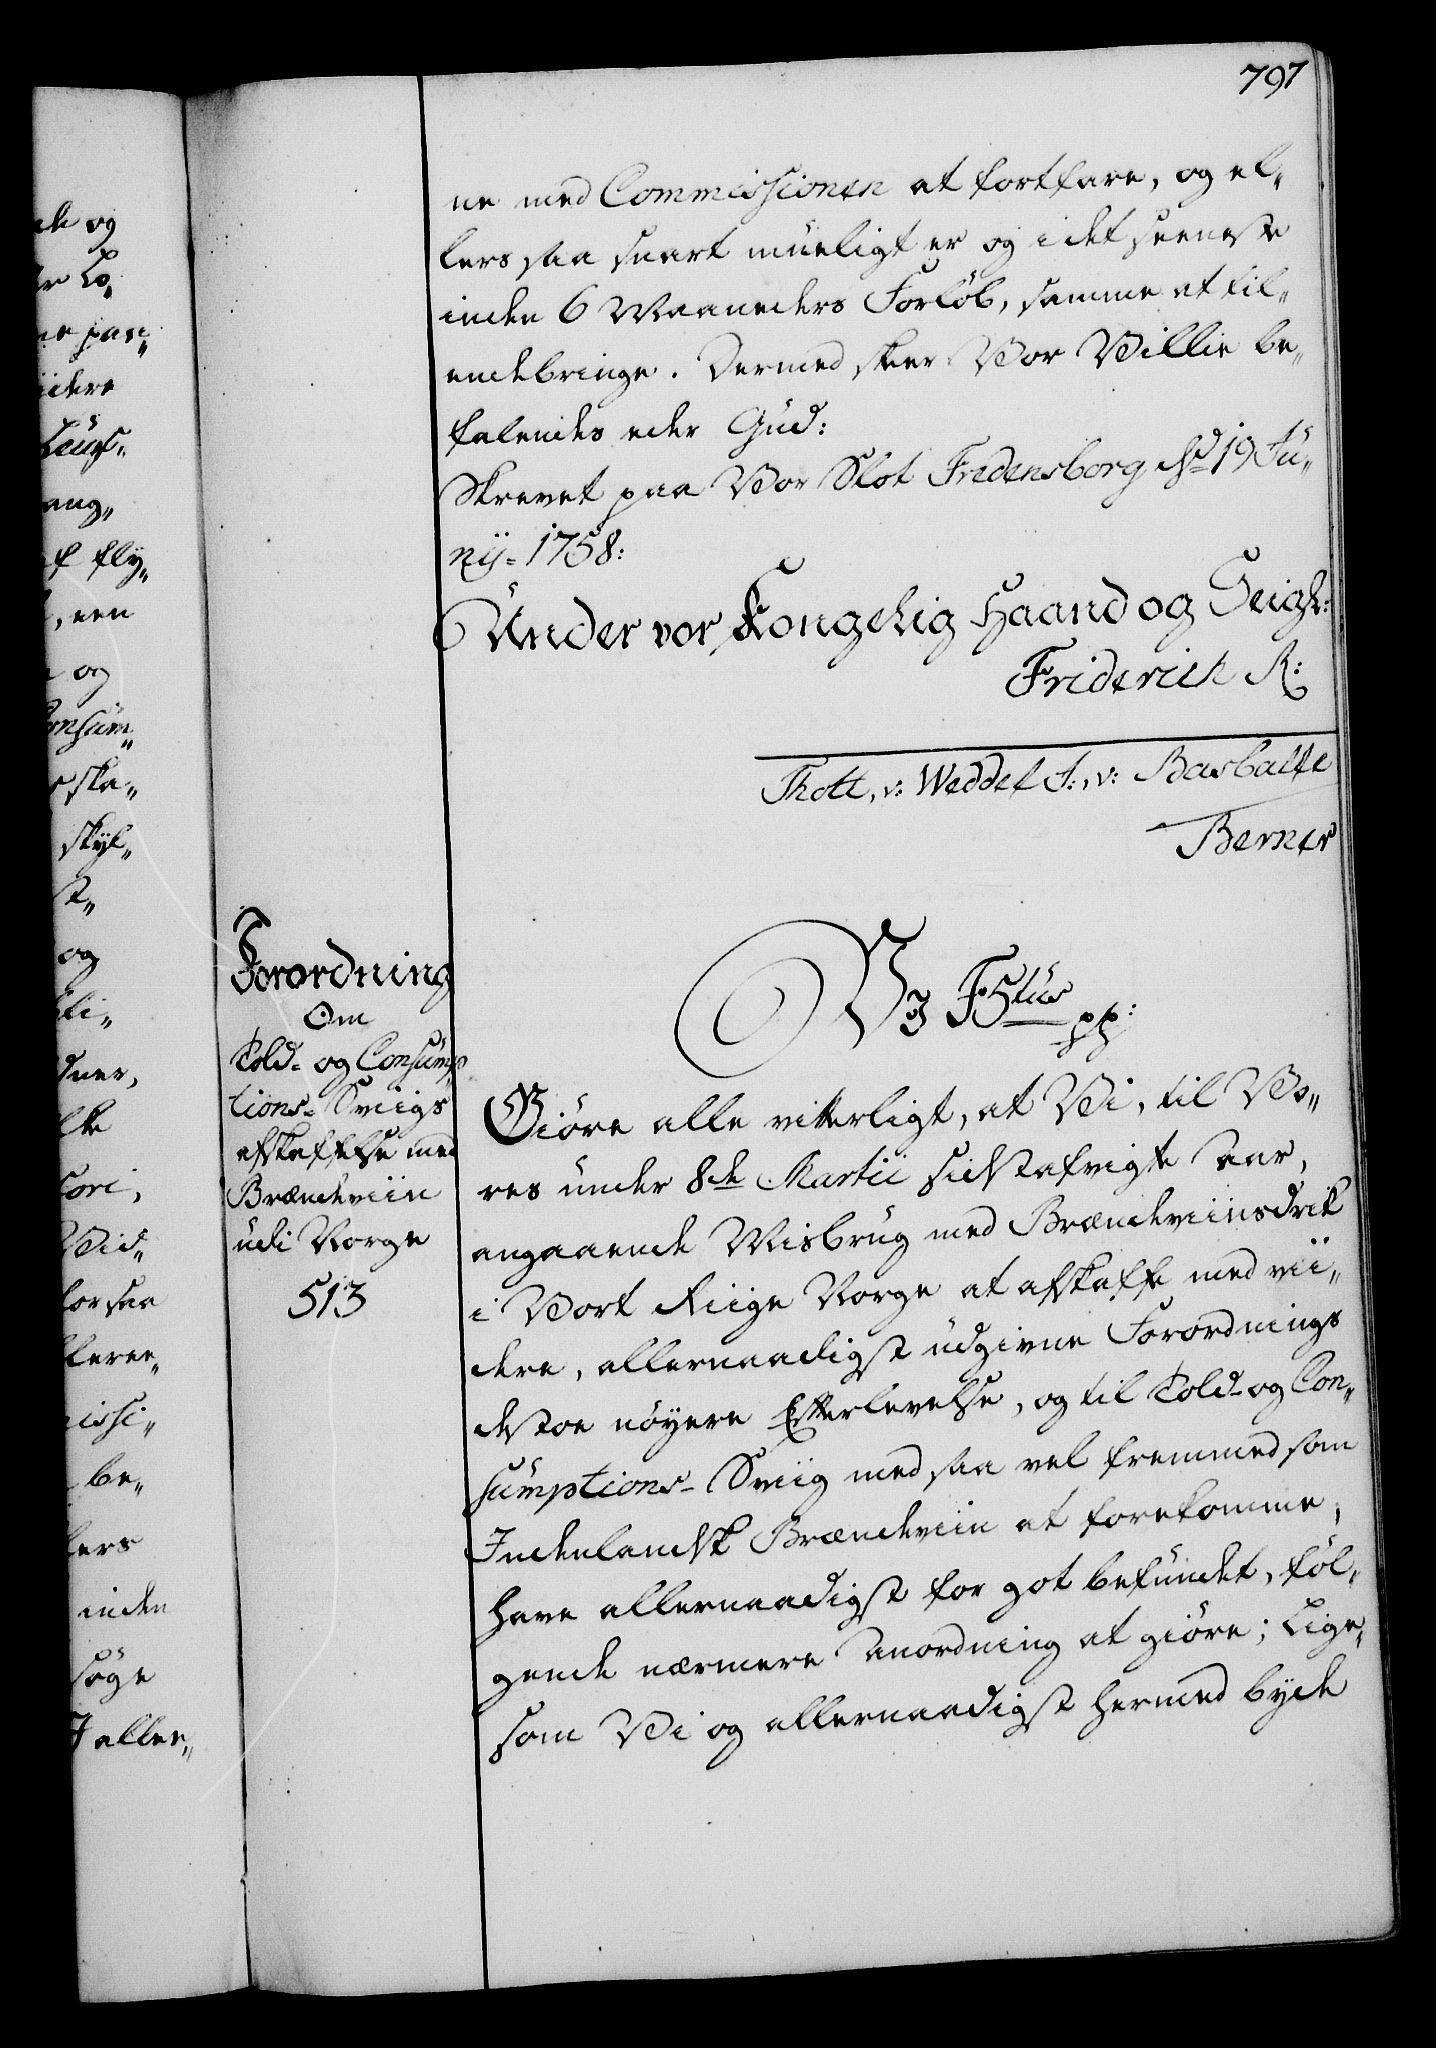 797
ne med Commissionen at fortfare, og el„
lers saa snart mueligt er og i det seeneste
inden 6 Maaneders Forløb, samme at til„
endebringe. Dermed skeer Vor Villie be„
falendes eder Gud:
Skrevet paa Vor Slot Fredensborg d. 19 Ju„
nij= 1758:
Under vor Kongelig Haand og Seigl:
Friderich R:
Thott, v: Weddel F:, v: Barbalte
Berner
Forordning
Om
Told- og Consump„
tions- Sviigs
afskaffelse med
Brændeviin
udi Norge
513
Vi F5tus pp:
Giøre alle vitterligt, at Vi, til Vo„
res under 8de Martii sidstafvigte Aar,
angaaende Misbrug med Brændeviinsdrik
i Vort Riige Norge at afskaffe med vii„
dere, allernaadigst udgivne Forordnings
destoe nøyere Efterlevelse, og til Told- og Con„
sumptions- Sviig med saa vel fremmed som
Indenlandsk Brændeviin at forekomme,
have allernaadigst for got befundet, føl„
gende nærmere Anordning at giøre; Lige„
som Vi og allernaadigst hermed byde
de og
pas„
iidere
ang„
fly„
, een
og
onsum„
ska„
skyl„
st„
og
li„
dner,
lke
tori,
Vid„
for saa
leree„
issi„
be„
lers
inden
søge
I aller„